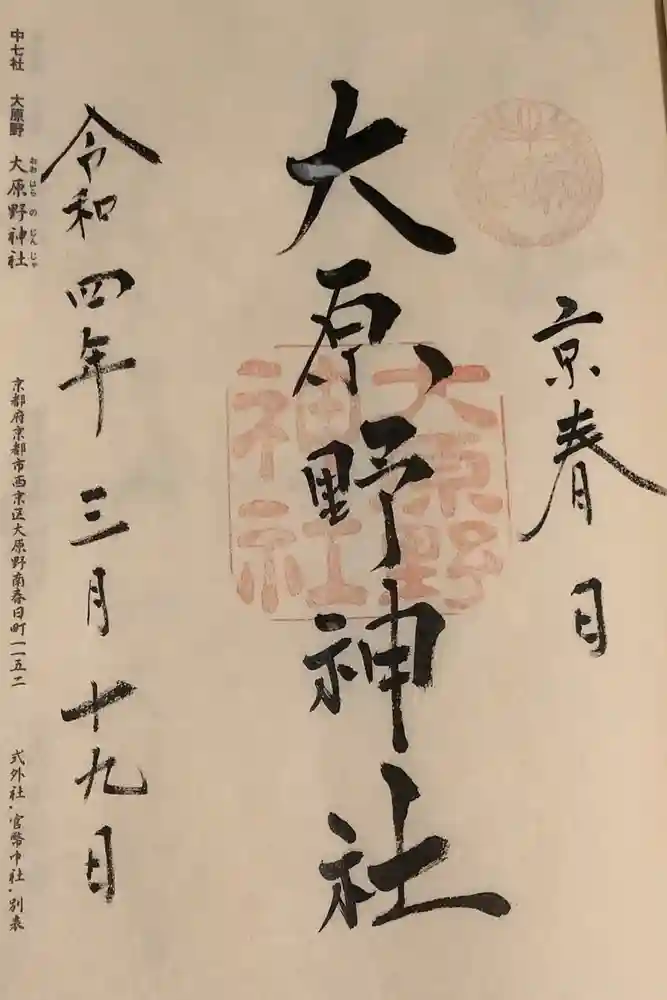 京春日
大原野神社
大原野
神社
令和四年三月十九日
中七社 大原野 大原野神社
おおはらのじんじゃ
京都府京都市西京区大原野南春日町一一五二
式外社・官幣中社・別表